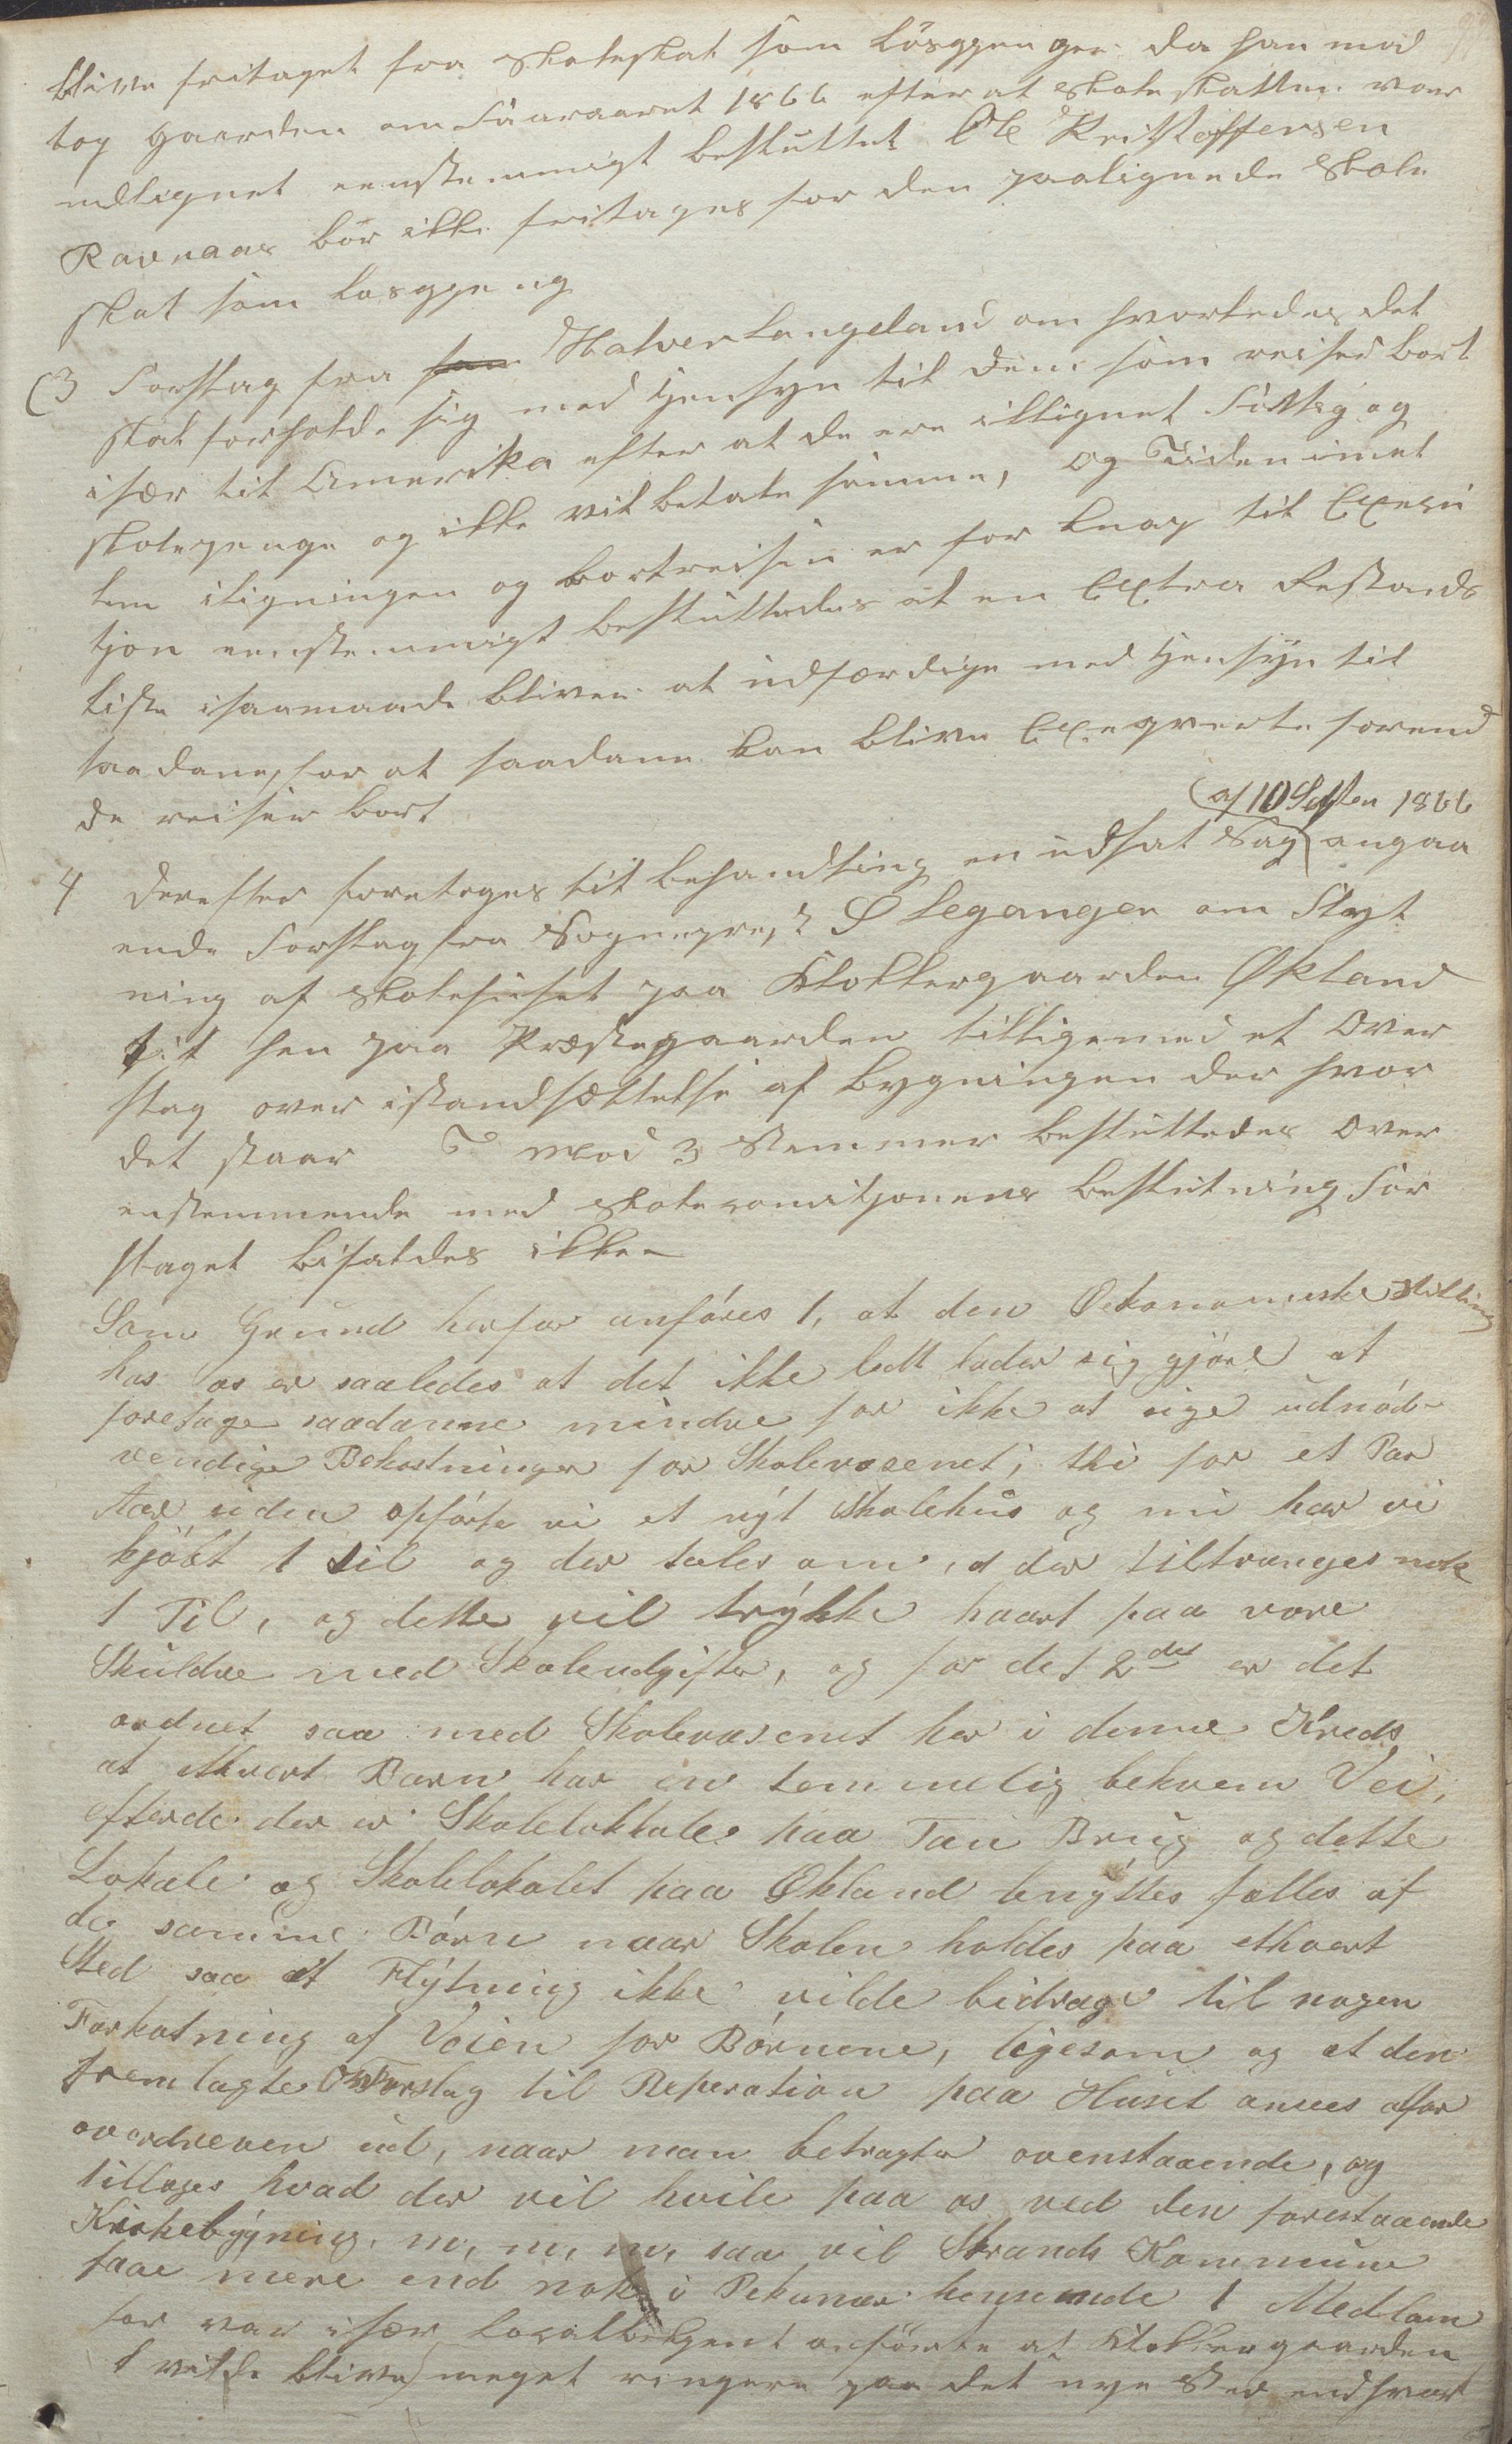 blive fritaget fra Skoleskat som Løsgjenger da han mod
tog Gaarden om Faaraaret 1866 efter at Skoleskatten var
udlignet eenstemmigt besluttet Ole Kristoffersen
Ravnaas bør ikke fritages for den paalignede Skole
skat som Løsgjeng
(3 Forslag fra Halver Langeland om hvorledes det
skal forholde sig med Hensyn til dem som reiser bort
især til Amerika efter at de ere illignet Fattig og
skolepenge og ikke vil betale samme, og Tiden imel
lem iligningen og bortreisen er for knap til Exesu
tjon eenstemmigt besluttedes at en Extra Restands
liste isaamaade bliver at udfærdige med Hensyn til
saadane, for at saadane kan blive Exeqverte forend
de reiser bort
(af 10 Septen 1866
4 derefter foretoges til Behandling en udsat Sag angaa
ende Forslag fra Sognepræst Ø Legangen om Flyt
ning af Skolehuset paa Klokkergaarden Økland
til hen paa Præstegaarden tilligemed et Over
slag over istandsættelse af Bygningen der hvor
det staar 7 mod 3 Stemmer besluttedes over
enstemmende med Skolecomitjonens Beslutning For
slaget bifaldes ikke
Som Grund herfor anføres 1, at den Oekonomiske Stilling
hos os er saaledes at det ikke lett lader sig gjøre at
foretage saadanne mindre for ikke at sige udnød-
vendige Bekostninger for Skolevæsenet; thi for et Par
Aar siden opførte vi et nyt Skolehus og nu har vi
kjøbt 1 til og der tales om, at der tiltrænges nok
1 Til, og dette vil trykke haart paa vore
Skuldre med Skoleudgifter, og for det 2det er det
ordnet saa med Skolevæsenet her i denne Kreds
at ethvert Barn har en temmelig bekvem Vei,
efterde der er Skolelokkale paa Tau Brug og dette
Lokale og Skolelokalet paa Økland benyttes fælles af
de samme Børn naar Skolen holdes paa ethvert
Sted saa at Flytning ikke vilde bidrage til nogen
Forkotning af Veien for Børnene, ligesom og at den
fremlagte Forslag til Reperation paa Huset ansees alfor
overdreven ud, naar man betragter ovenstaaende, og
tillages hvad der vil hvile paa os ved den forestaaende
Kirkebygning. m, m, m, saa vil Strands Kommune
faae mere end nok i Pekunær henseende 1 Medlem
for var især Localbekjent anførte at Klokkergaarden
vilde blive meget ringere paa det nye Sted end hvor